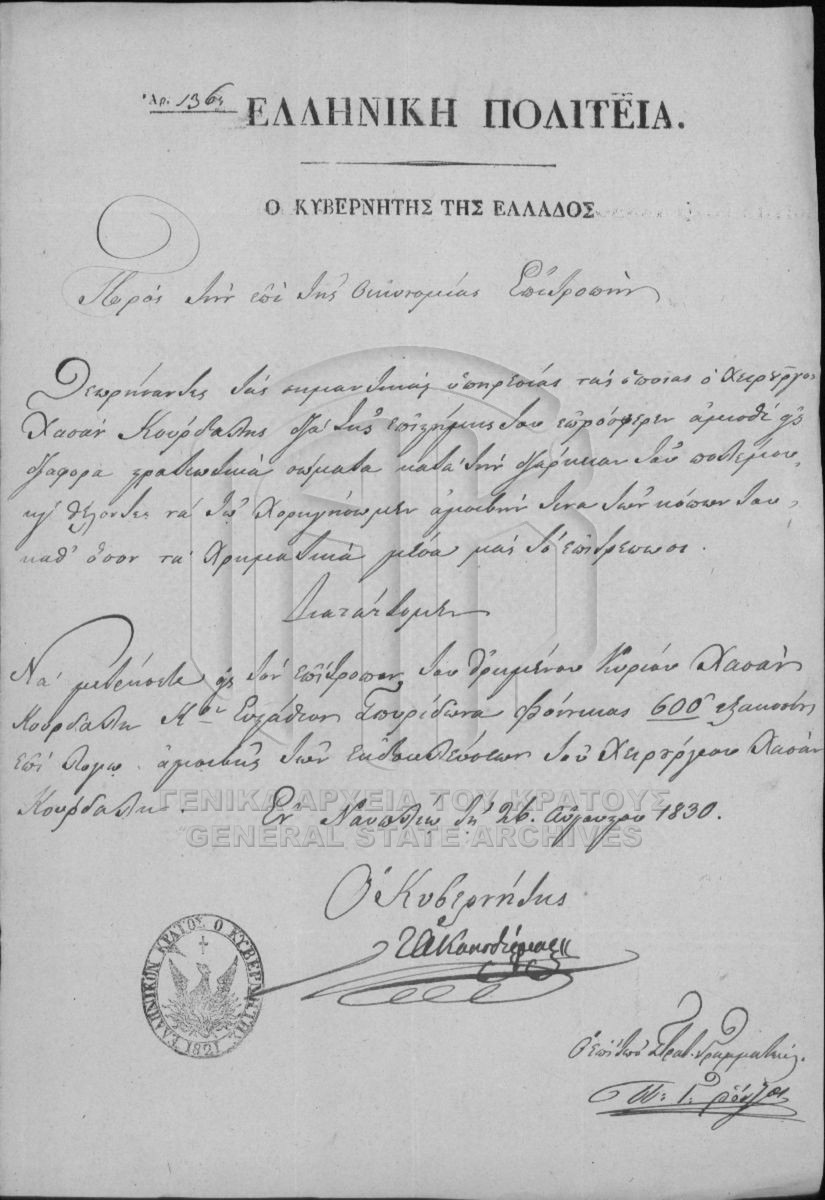 Ἀρ. 1362
ΕΛΛΗΝΙΚΗ ΠΟΛΙΤΕΙΑ.
Ο ΚΥΒΕΡΝΗΤΗΣ ΤΗΣ ΕΛΛΑΔΟΣ
Πρὸς τὴν ἐπὶ τῆς Οἰκονομίας Ἐπιτροπὴν
Θεωρήσαντες τὰς σημαντικὰς ὑπηρεσίας τὰς ὁποίας ὁ Χειρουργὸς
Χασὰν Κούρδαλης διὰ τῆς ἐπιστήμης του ἐπρόσφερεν ἀμισθὶ εἰς
διάφορα στρατιωτικὰ σώματα κατὰ τὴν διάρκειαν τοῦ πολέμου
καὶ θέλοντες νὰ τῷ χορηγήσωμεν ἀμοιβήν τινα τῶν κόπων του,
καθ' ὅσον τὰ χρηματικὰ μέσα μᾶς τὸ ἐπιτρέπωσι.
Διατάττομεν
Νὰ μετρήσετε εἰς τὸν ἐπίτροπον τοῦ εἰρημένου Κυρίου Χασὰν
Κούρδαλη Κον Εὐστάθιον Σπυρίδωνα φοίνικας 600 ἑξακοσίους
ἐπὶ λόγῳ ἀμοιβῆς τῶν ἐκδουλεύσεων τοῦ Χειρούργου Χασὰν
Κούρδαλη.
Ἐν Ναυπλίῳ τῇ 26. Αὐγούστου 1830.
Ὁ Κυβερνήτης
ΙΑ Καποδίστριας
ΕΛΛΗΝΙΚΟΝ ΚΡΑΤΟΣ Ο ΚΥΒΕΡΝΗΤΗΣ
1821
Ὁ ἐπὶ τῶν Στρατ. Γραμματεὺς.
ΓΕΝΙΚΑ ΑΡΧΕΙΑ ΤΟΥ ΚΡΑΤΟΥΣ
GENERAL STATE ARCHIVES